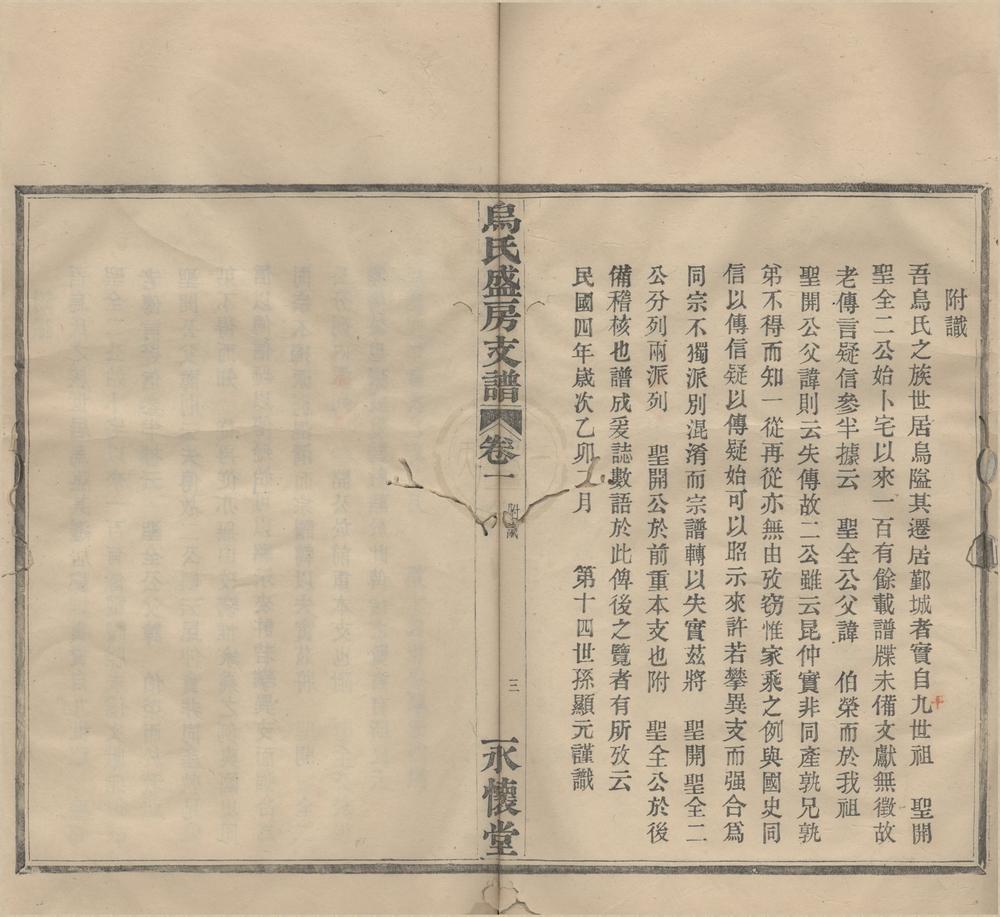 附識
吾烏氏之族世居烏隘其遷居鄞城者實自九世祖　聖開
聖全二公始卜宅以來一百有餘載譜牒未備文獻無徵故
老傳言疑信參半據云　聖全公父諱　伯榮而於我祖
聖開公父諱則云失傳故二公雖云昆仲實非同產孰兄孰
弟不得而知一從再從亦無由攷竊惟家乘之例與國史同
信以傳信疑以傳疑始可以昭示來許若攀異支而强合爲
同宗不獨派別混淆而宗譜轉以失實茲將　聖開聖全二
公分列兩派列　聖開公於前重本支也附　聖全公於後
備稽核也譜成爰誌數語於此俾後之覽者有所攷云
民國四年歲次乙卯二月　第十四世孫顯元謹識
烏氏盛房支譜
卷一
附識
三
永懷堂